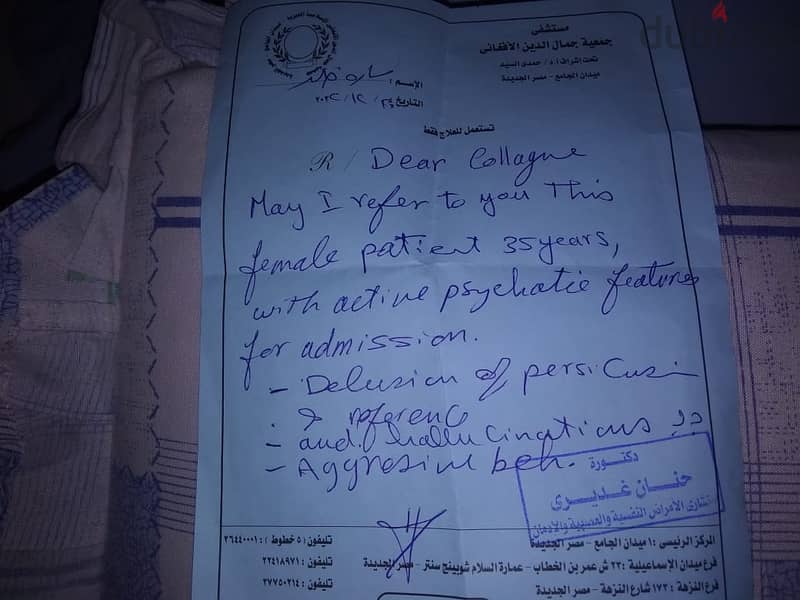 مستشفى
جمعية جمال الدين الأفغانى
تحت إشراف أ.د/ حمدى السيد
ميدان الجامع - مصر الجديدة
الإسم :
التاريخ
تستعمل للعلاج فقط
R/ Dear Collagne
May I refer to you This
female patient 35 years,
with active psychatic features
for admission.
- Delusion of
& reference
- aud. hallucinations
- Aggresive beh.
دكتورة
حنان غديرى
الأمراض النفسية والعصبية والإدمان
المركز الرئيسى : ١ ميدان الجامع - مصر الجديدة
تليفون : (٥ خطوط) ٢٦٤٤٠٠٠١
فرع ميدان الإسماعيلية : ٢٣ ش عمر بن الخطاب - عمارة السلام شوبينج سنتر - مصر الجديدة
تليفون : ٢٢٤١٨٩٧١
فرع النزهة : ١٧٣ شارع النزهة - مصر الجديدة
تليفون : ٢٧٧٥٠٢١٤